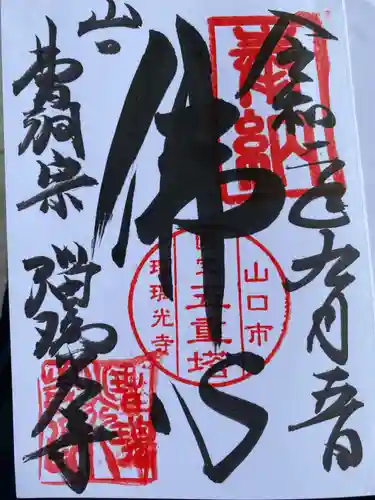 奉納
令和元年九月五日
佛心
山口市
国宝五重塔
瑠璃光寺
山口
曹洞宗 瑠璃光寺